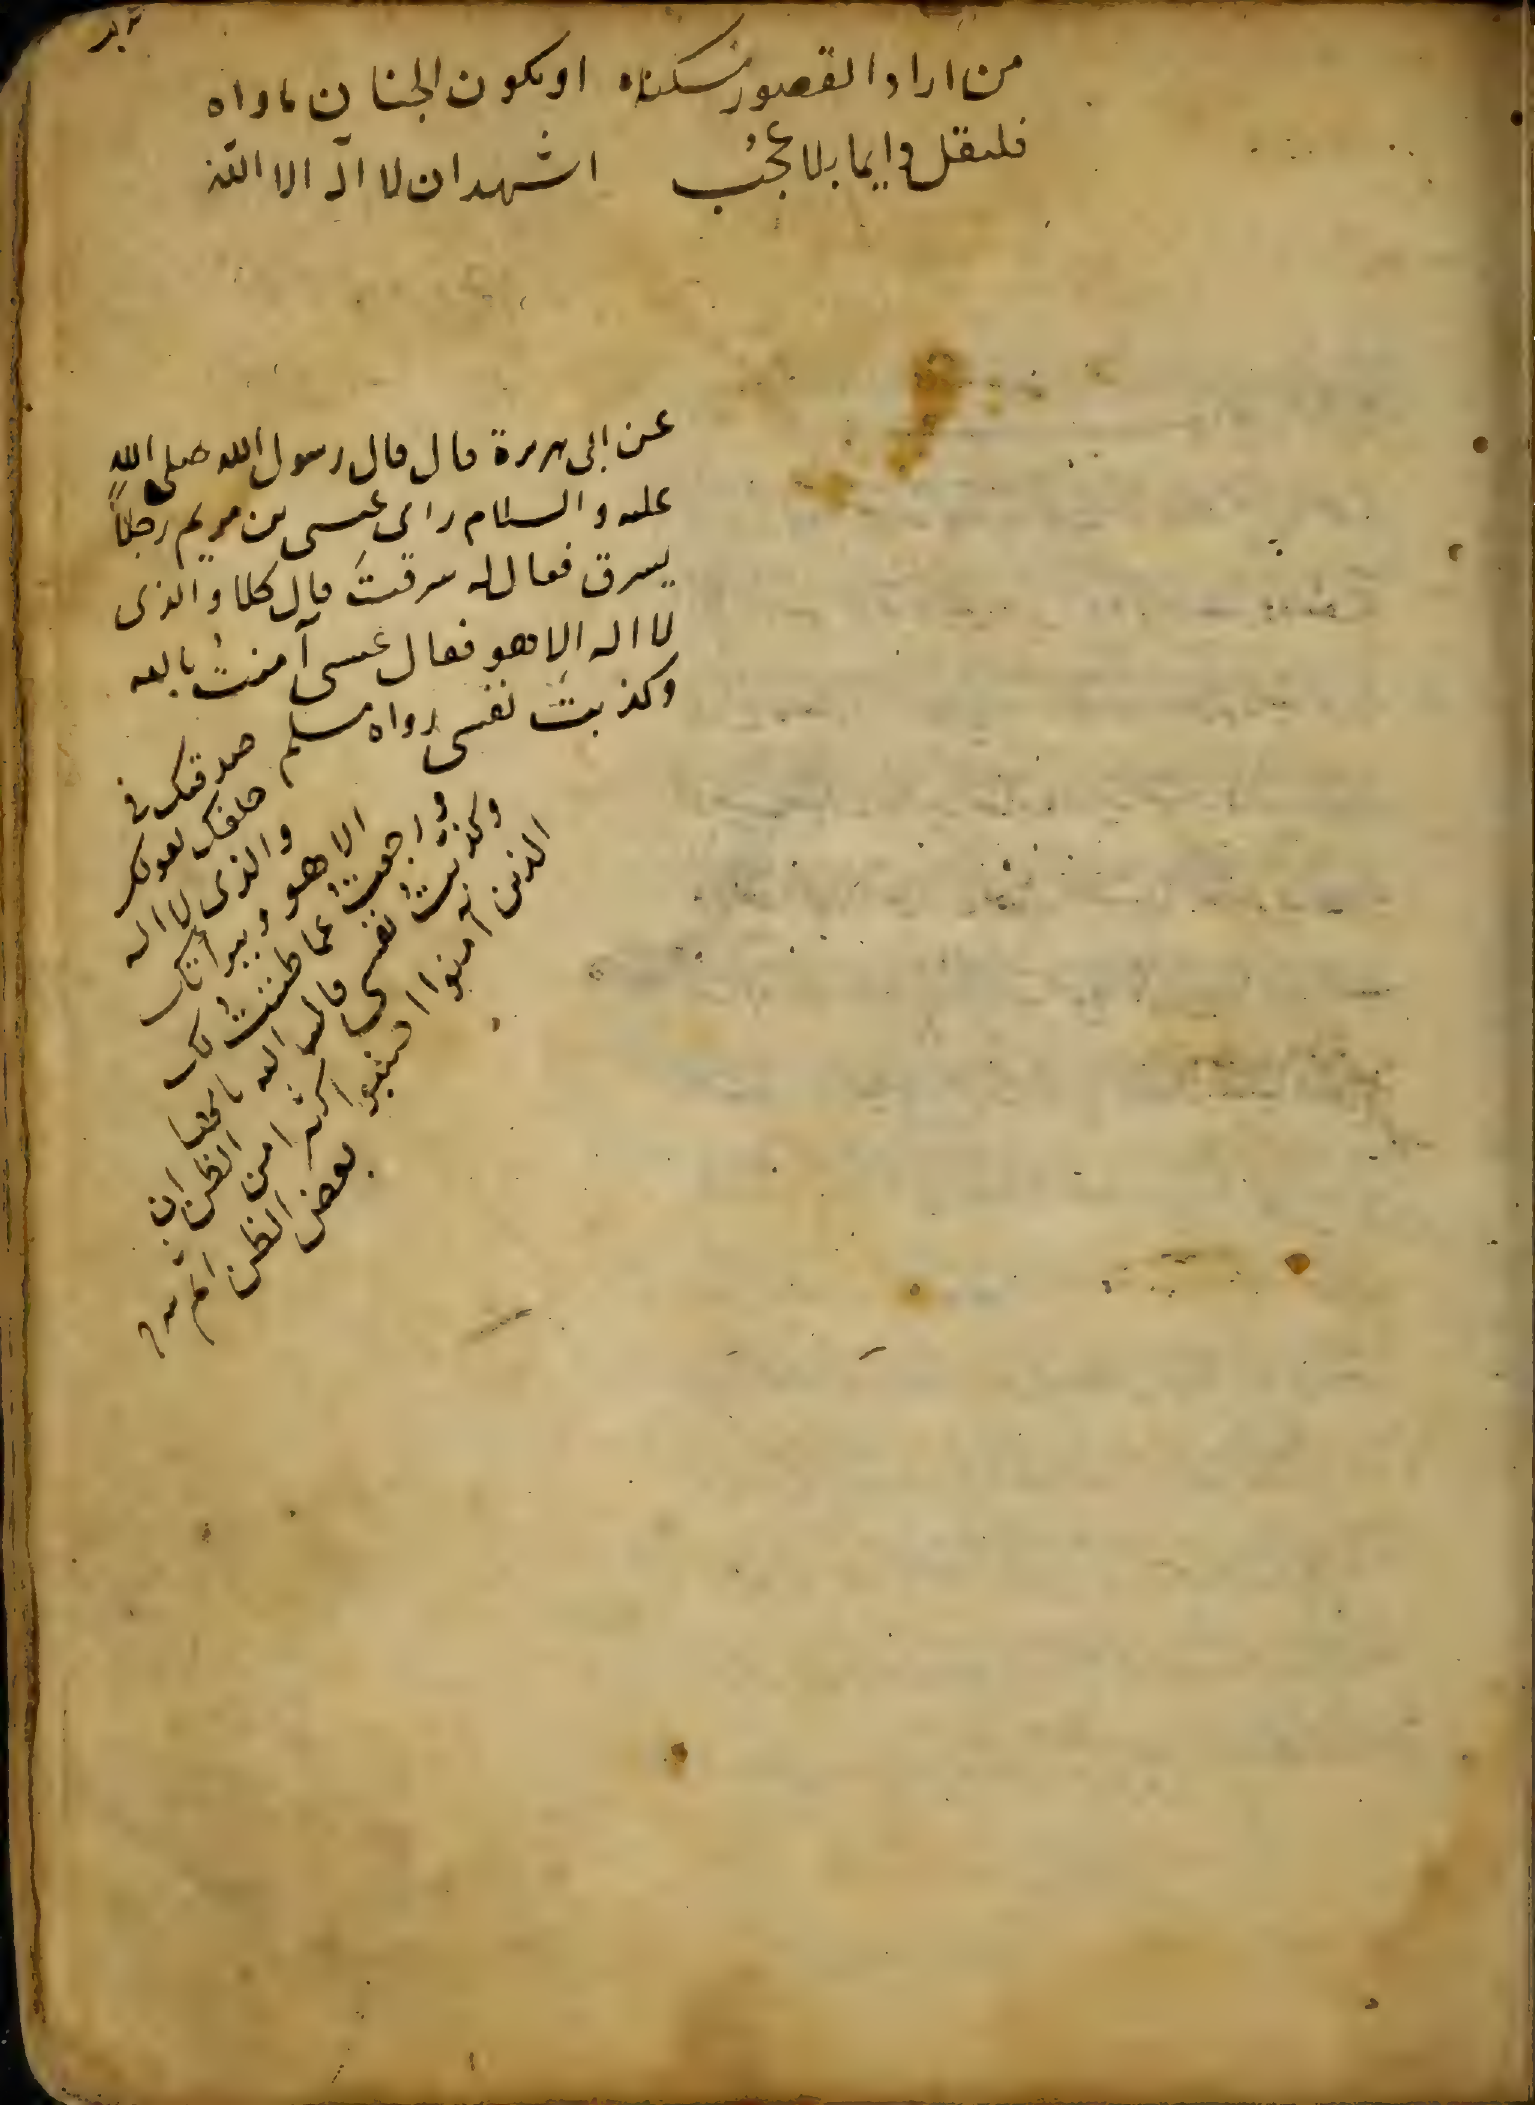 من اراد القصور مسكناه او يكون الجنان ماواه
فليقل دايما بلا عجب اشهد ان لا اله الا الله
عن ابى هريرة قال قال رسول الله صلى الله
عليه و السلام راى عيسى بن مريم رجلاً
يسرق فقال له سرقتَ قال كلا و الذى
لا اله الا هو فقال عيسى آمنتُ بالله
وكذبت نفسى رواه مسلم
صدقتك فى
حلفك بقولك
والذى لا اله
الا هو و ببراتك
ورجعت عما ظننتُ بك
وكذبتُ نفسى قال الله يا ايها
الذين آمنوا اجتنبوا كثيرا من الظن ان
بعض الظن اثم